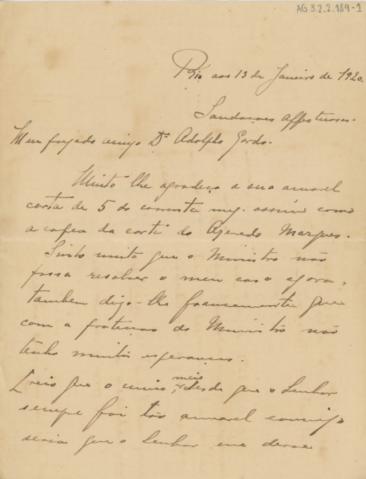 AG 3.2.2.189-1
Rio aos 13 de Janeiro de 1920
Saudações Affectuosas.
Meu prezado amigo Dr. Adolpho Gordo.
Muito lhe agradeço a sua amavel
carta de 5 do corrente mez assim como
a copia da carta do Azevedo Marques.
Sinto muito que o Ministro não
possa resolver o meu caso agora,
tambem digo-lhe francamente que
com a do Ministro não
tenho muitas esperanças.
Creio que o unico meio, desde que o Senhor
sempre foi tão amavel comigo
seria que o Senhor me desse